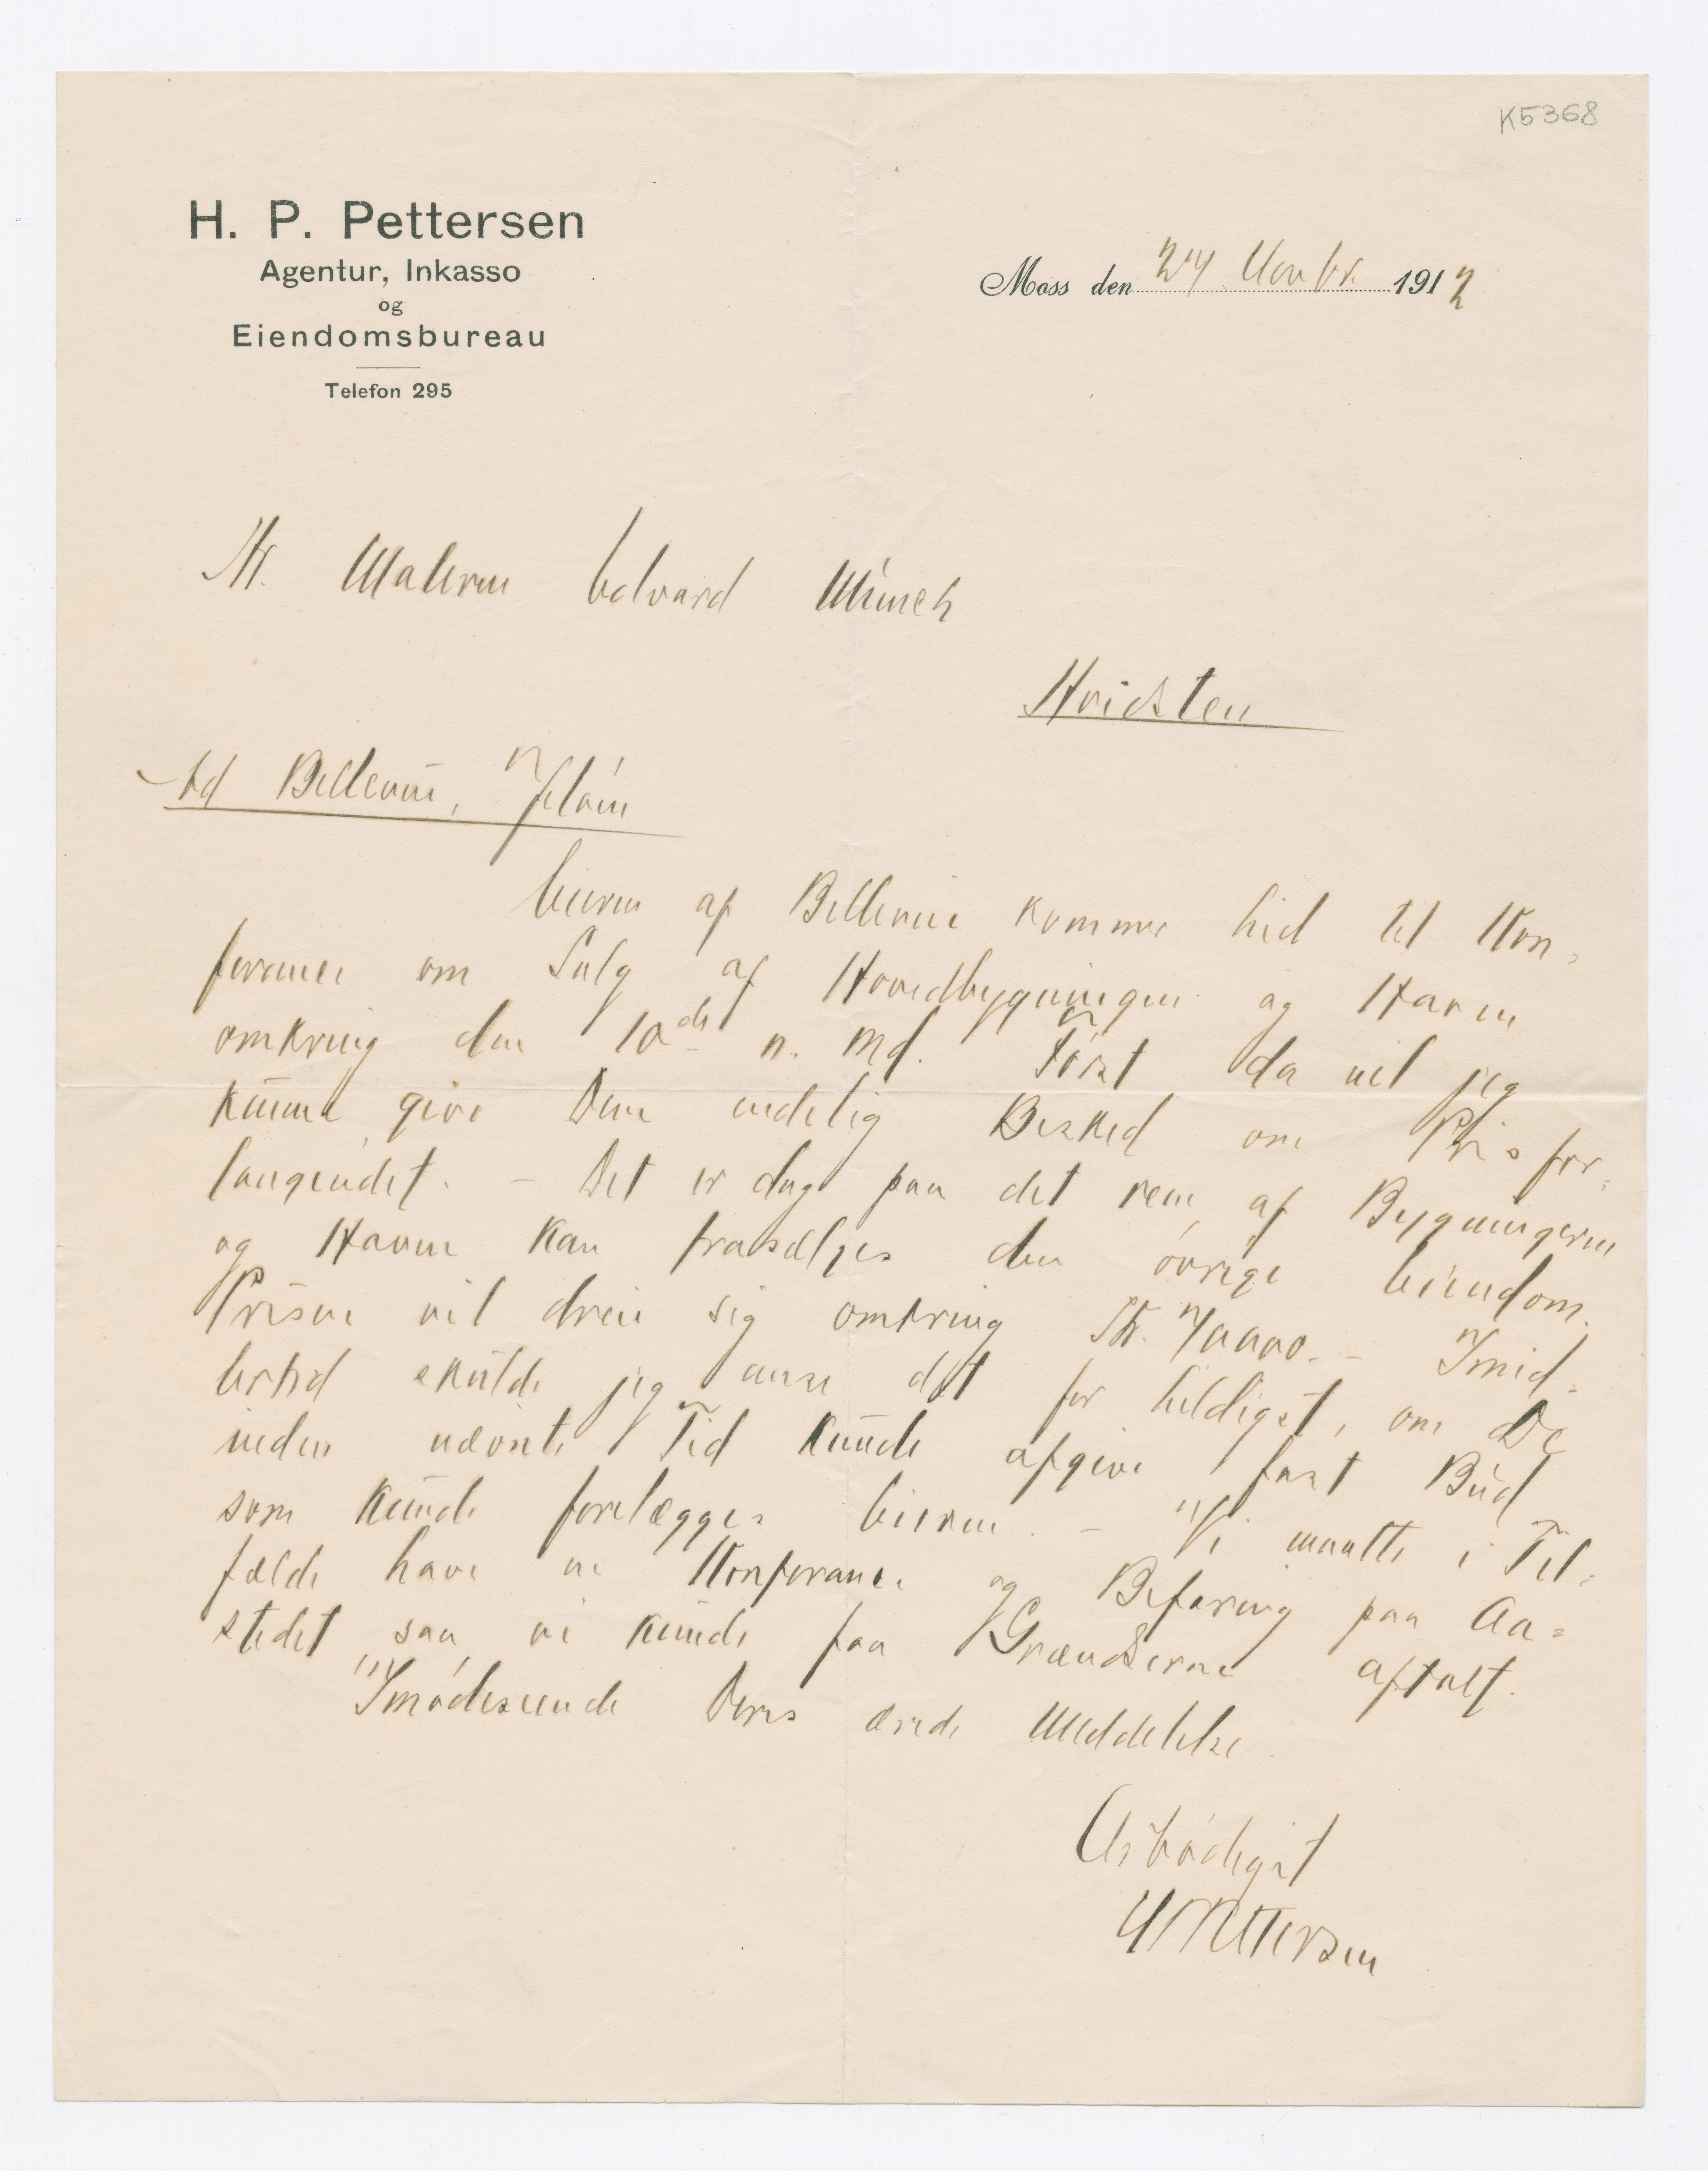 K5368
H. P. Pettersen
Agentur, Inkasso
og
Eiendomsbureau
Telefon 295
Moss den 24 Novbr. 1912
Hr. Maleren Edvard Munch
Hvidsten
Ad Bellevue, Jeløen
Eieren af Bellevue kommer hid til Kon-
ferance om Salg af Hovedbygningen og Haven
omkring den 10de n. Md. Først da vil jeg
kunne give Dem endelig Besked om Prisfor-
langendet. – Det er dog paa det rene, at Bygningerne
og Haven kan frasælges den øvrige Eiendom.
Prisen vil dreie sig omkring Kr. – Imid-
lertid skulde jeg anse det for heldigst, om De
inden nævnte Tid kunde afgive fast Bud
som kunde forelægges Eieren. – Vi maatte i Til-
fælde have en Konferance og Befaring paa Aa-
stedet saa vi kunde faa Grændserne aftalt.
Imødeseende Deres ærede Meddelelse
Ærbødigst
HPPettersen